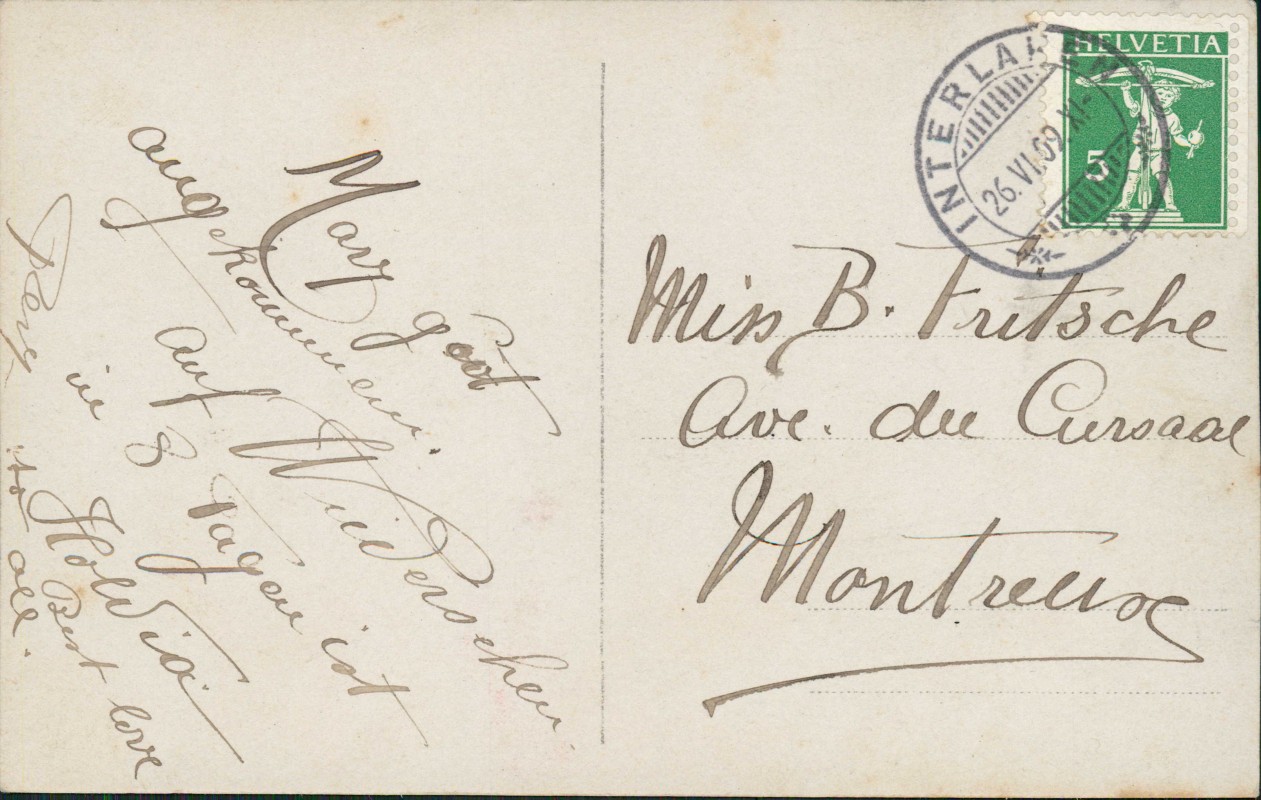 HELVETIA
5
INTERLAKEN
26.VI.09.XI-
Mary gut
angekommen.
Auf Wiedersehen
in 8 Tagen ist
Best love
to all.
Miss B. Fritsche
Ave. du Cursaal
Montreux